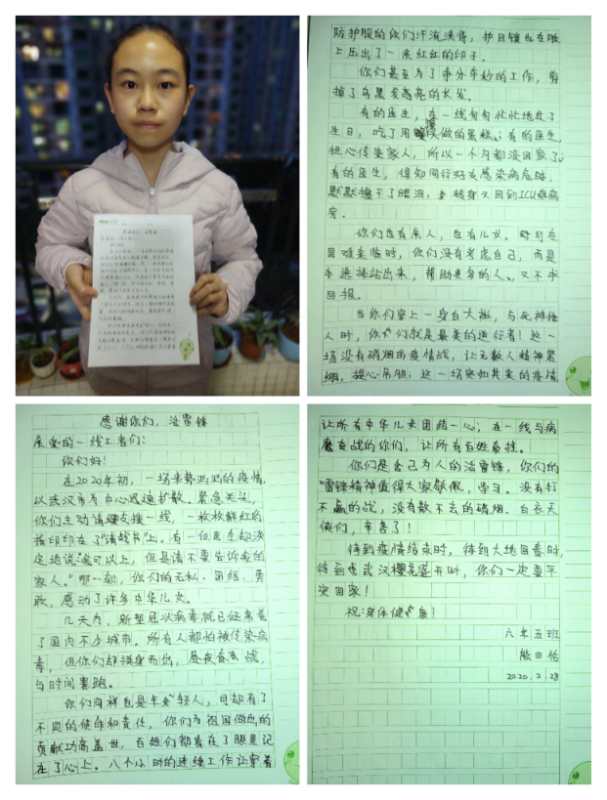 感谢你们，活雷锋
亲爱的一线工作者们：
你们好！
在2020年初，一场来势汹汹的疫情，
以武汉市为中心迅速扩散。紧急关头，
你们主动请缨支援一线，一枚枚鲜红的
指印印在了“请战书”上。有一位医生却决
定地说：“我可以上，但是请不要告诉我的
家人。”那一刻，你们的无私、团结、勇
敢，感动了许多中华儿女。
几天内，新型冠状病毒就已经席卷
了国内不少城市。所有人都怕被传染病
毒，但你们却挺身而出，昼夜奋战，
与时间赛跑。
你们同样也是年轻人，身都有了
不同的使命和责任，你们为祖国做出的
贡献功高盖世，百姓们都看在了眼里记
在了心上。八个小时的连续工作让穿着
防护服的你们汗流浃背，护目镜也在脸
上压出了一条红红的印子。
你们甚至为了争分夺秒的工作，剪
掉了乌黑发亮的长发。
有的医生，在一线匆匆忙忙地过了
生日，吃了用馒头做的蛋糕；有的医生，
担心传染家人，所以一个月都没回家了；
有的医生，得知同行好友感染病危时，
默默擦干了眼泪，转身又回到ICU重病
房。
你们也有亲人，也有儿女。野兽在
困难来临时，你们没有考虑自己，而是
再
回报。
当你们穿上一身白大褂，与死神抢
人时，你们就是最美的逆行者！这一
场没有硝烟的疫情战，让无数人精神紧
绷，提心吊胆；这一场突如其来的疫情
让所有中华儿女团结一心；在一线与病
魔奋战的你们，让所有百姓喜挂。
你们是舍己为人的活雷锋，你们的
“雷锋精神”值得大家敬佩，学习。没有打
不赢的战，没有散不去的硝烟。白衣天
使们，辛苦了！
待到疫情结束时，待到大地回春时，
待到武汉樱花盛开时，你们一定要平
安回家！
祝：身体健康！
六年五班
2020.2.28